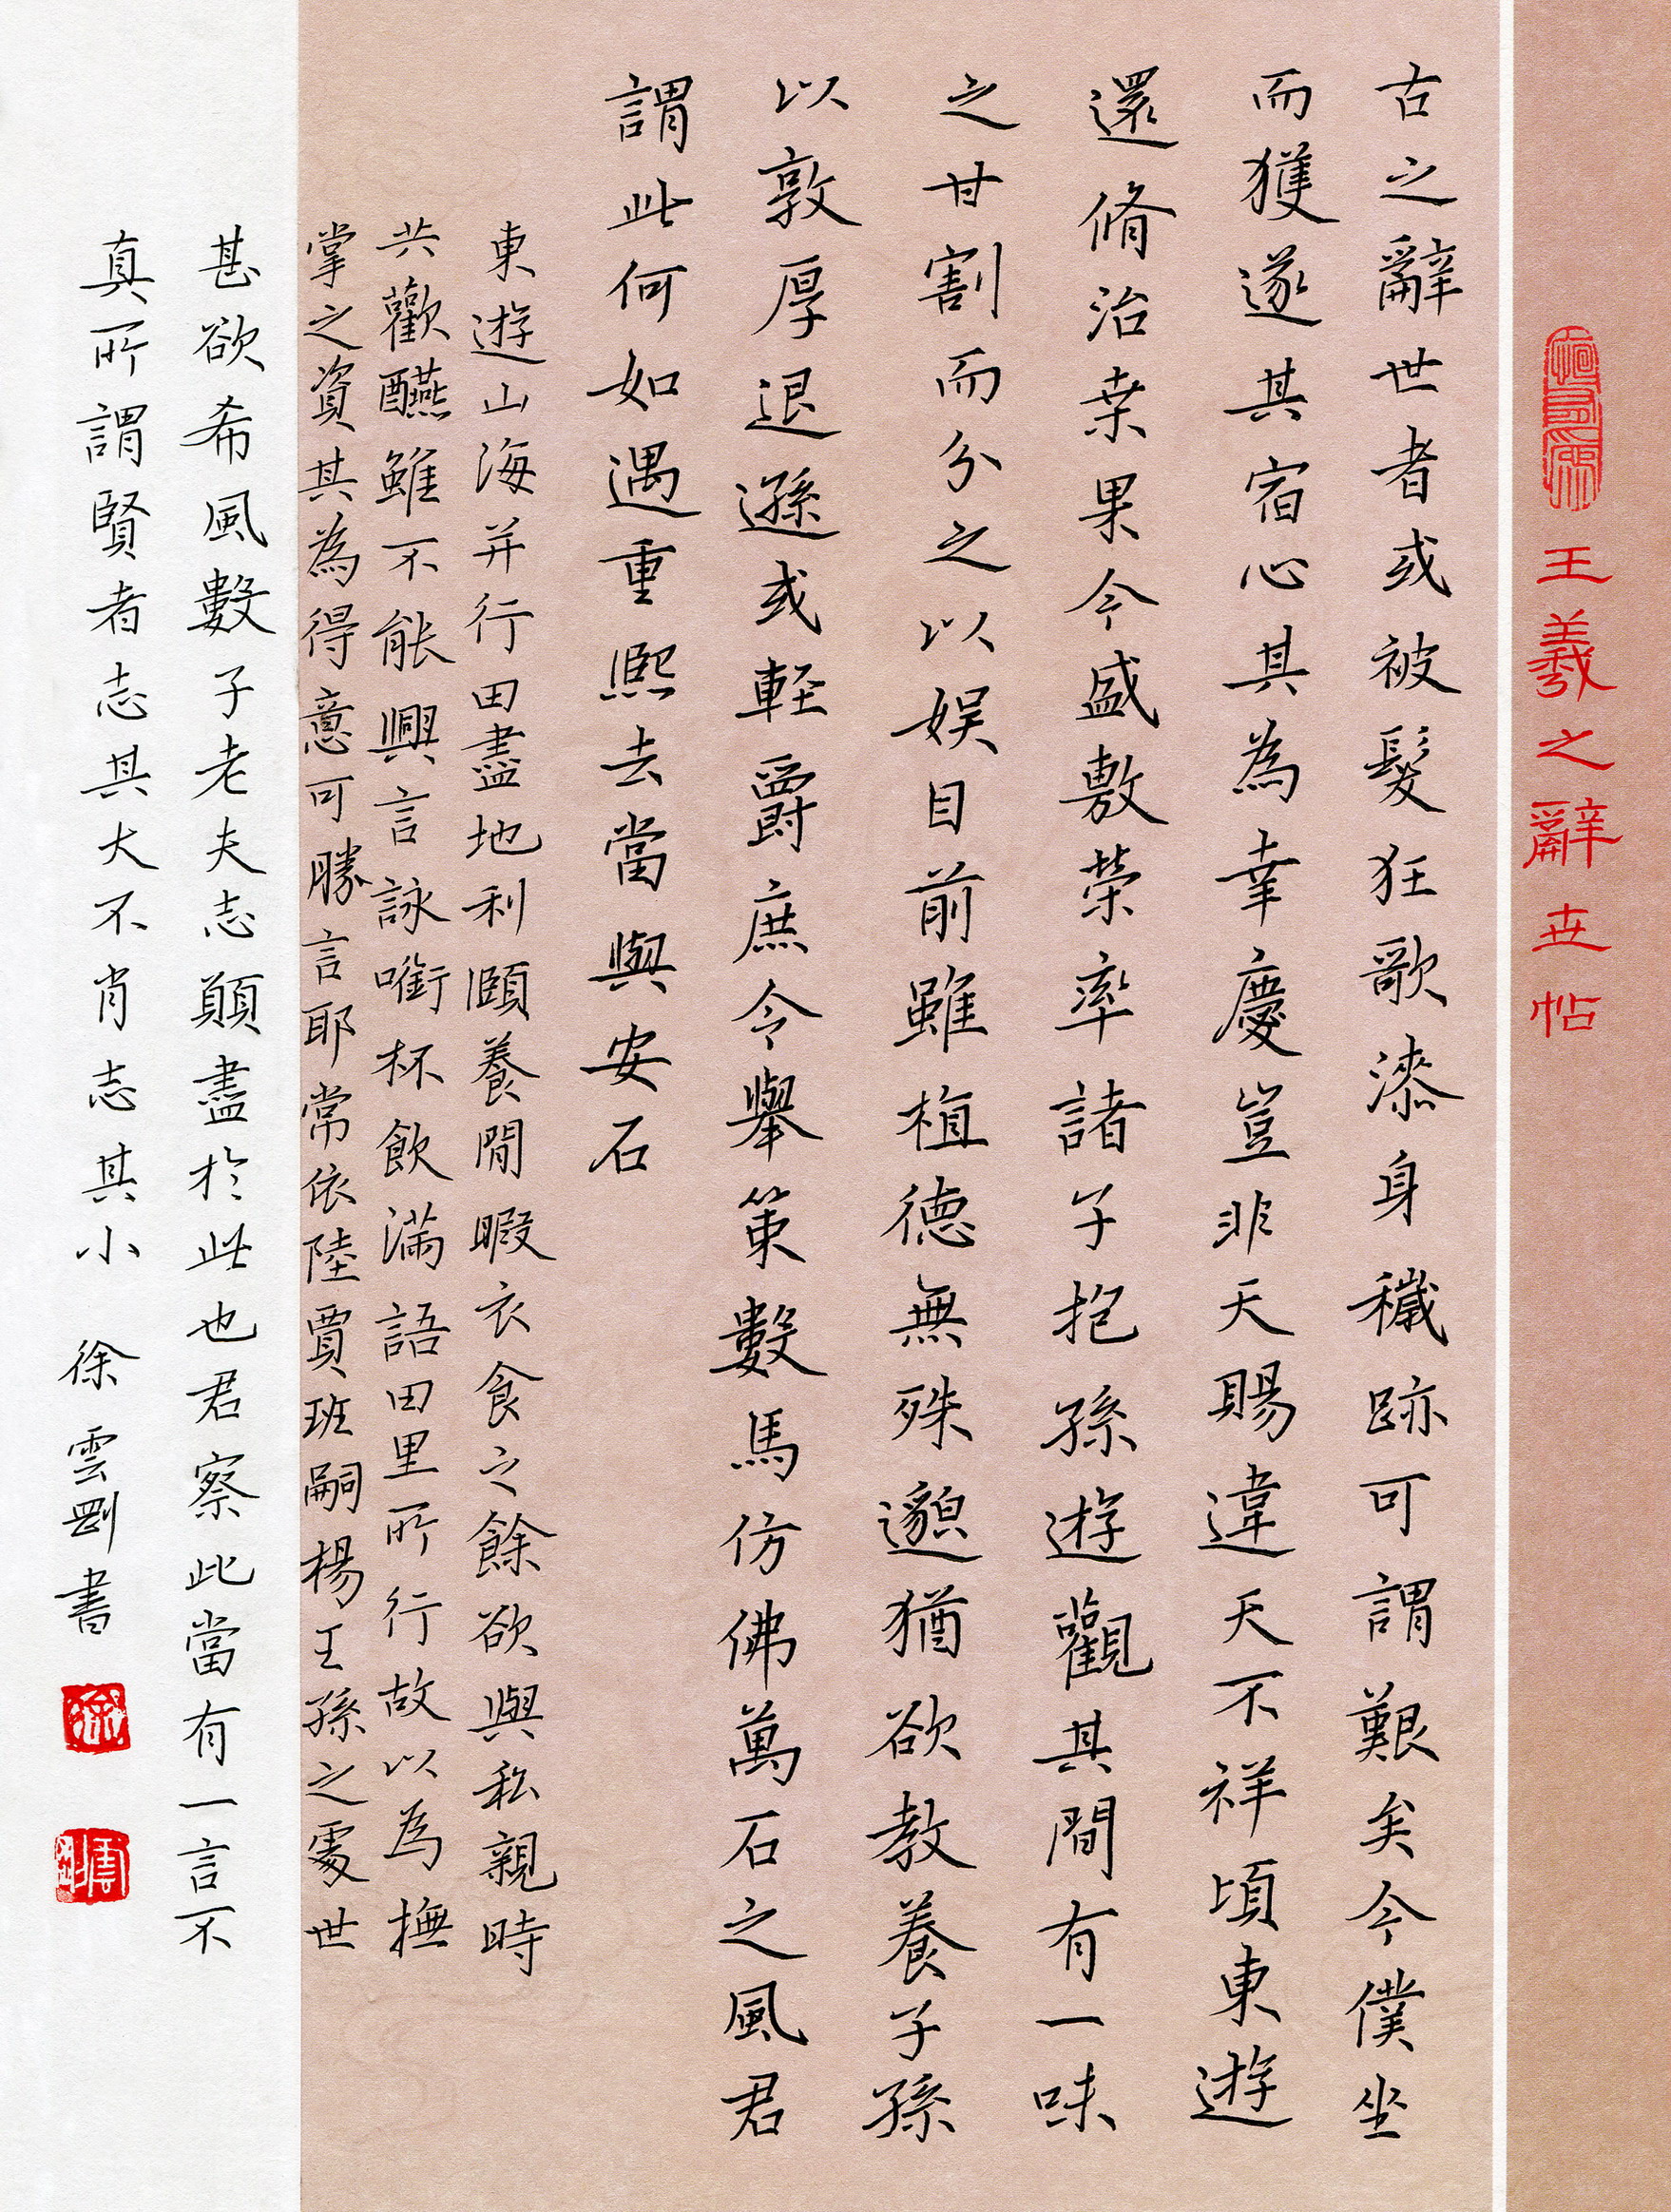 王羲之辭世帖
古之辭世者或被髮狂歌漆身穢跡可謂艱矣今僕坐
而獲遂其宿心其為幸慶豈非天賜違天不祥頃東遊
還脩治桒果今盛敷榮率諸子抱孫遊觀其間有一味
之甘割而分之以娱目前雖植德無殊邈猶欲教養子孫
以敦厚退遜或輕爵庶令舉策數馬仿佛萬石之風君
謂此何如遇重熙去當與安石
東遊山海并行田盡地利頤養閒暇衣食之餘欲與私親時
共歡醼雖不能興言詠銜杯飲滿語田里所行故以為撫
掌之資其為得意可勝言耶常依陸賈班嗣楊王孫之處世
甚欲希風數子老夫志願盡於此也君察此當有一言不
真所謂賢者志其大不肖志其小 徐雲剛書